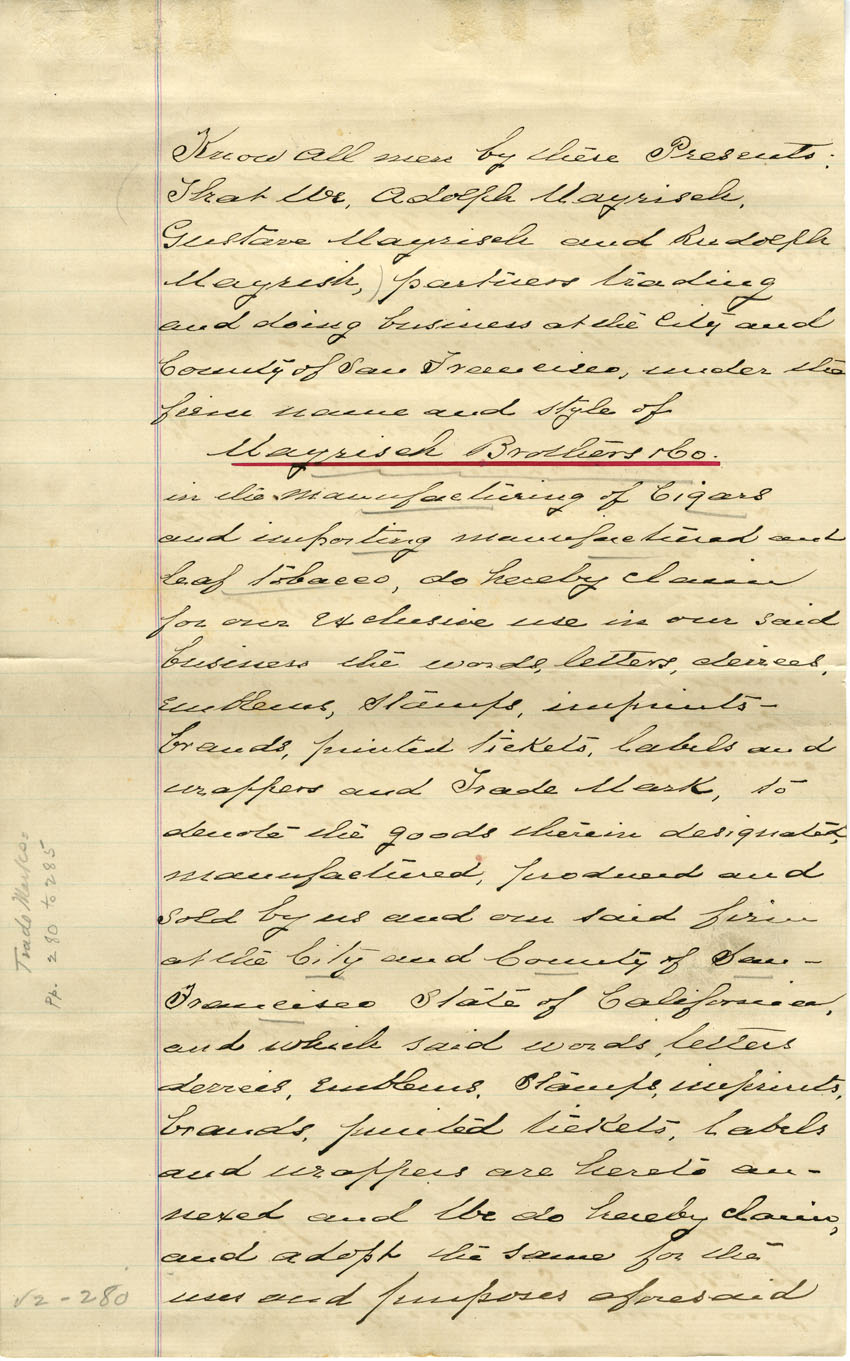 Know all men by these Presents:
That We, Adolph Mayrisch,
Gustave Mayrisch and Rudolph
Mayrish,) partners trading
and doing business at the City and
County of San Francisco, under the
firm name and style of
Mayrisch Brothers & Co.
in the manufacturing of Cigars
and importing manufactured and
leaf tobacco, do hereby claim
for our exclusive use in our said
business the words, letters, devices,
emblems, stamps, imprints-
brands, printed tickets, labels and
wrappers and Trade Mark, to
denote the goods therein designated,
manufactured, produced and
sold by us and our said firm
at the City and County of San-
Francisco State of California,
and which said words, letters
devices, emblems, stamps, imprints,
brands, printed tickets, labels
and wrappers are hereto an-
nexed and We do hereby claim,
and adopt the same for the
uses and purposes aforesaid
Trade Marks=
pp. 280 to 285
V2-280